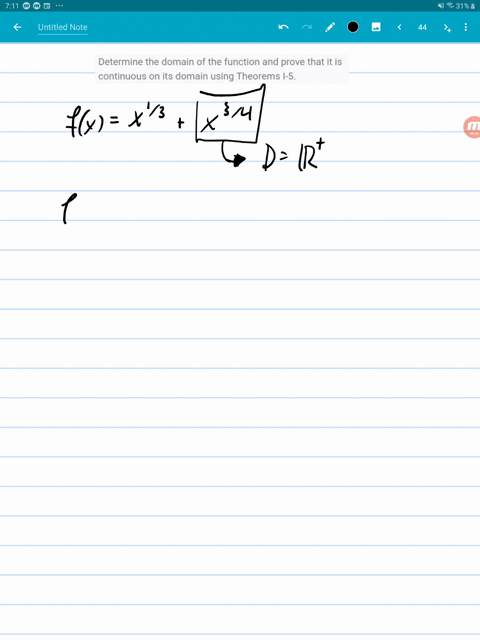 7:11
31%
Untitled Note
44
Determine the domain of the function and prove that it is
continuous on its domain using Theorems I-5.
f(x) = x^1/3 + x^3/4
D = ℝ^+
f